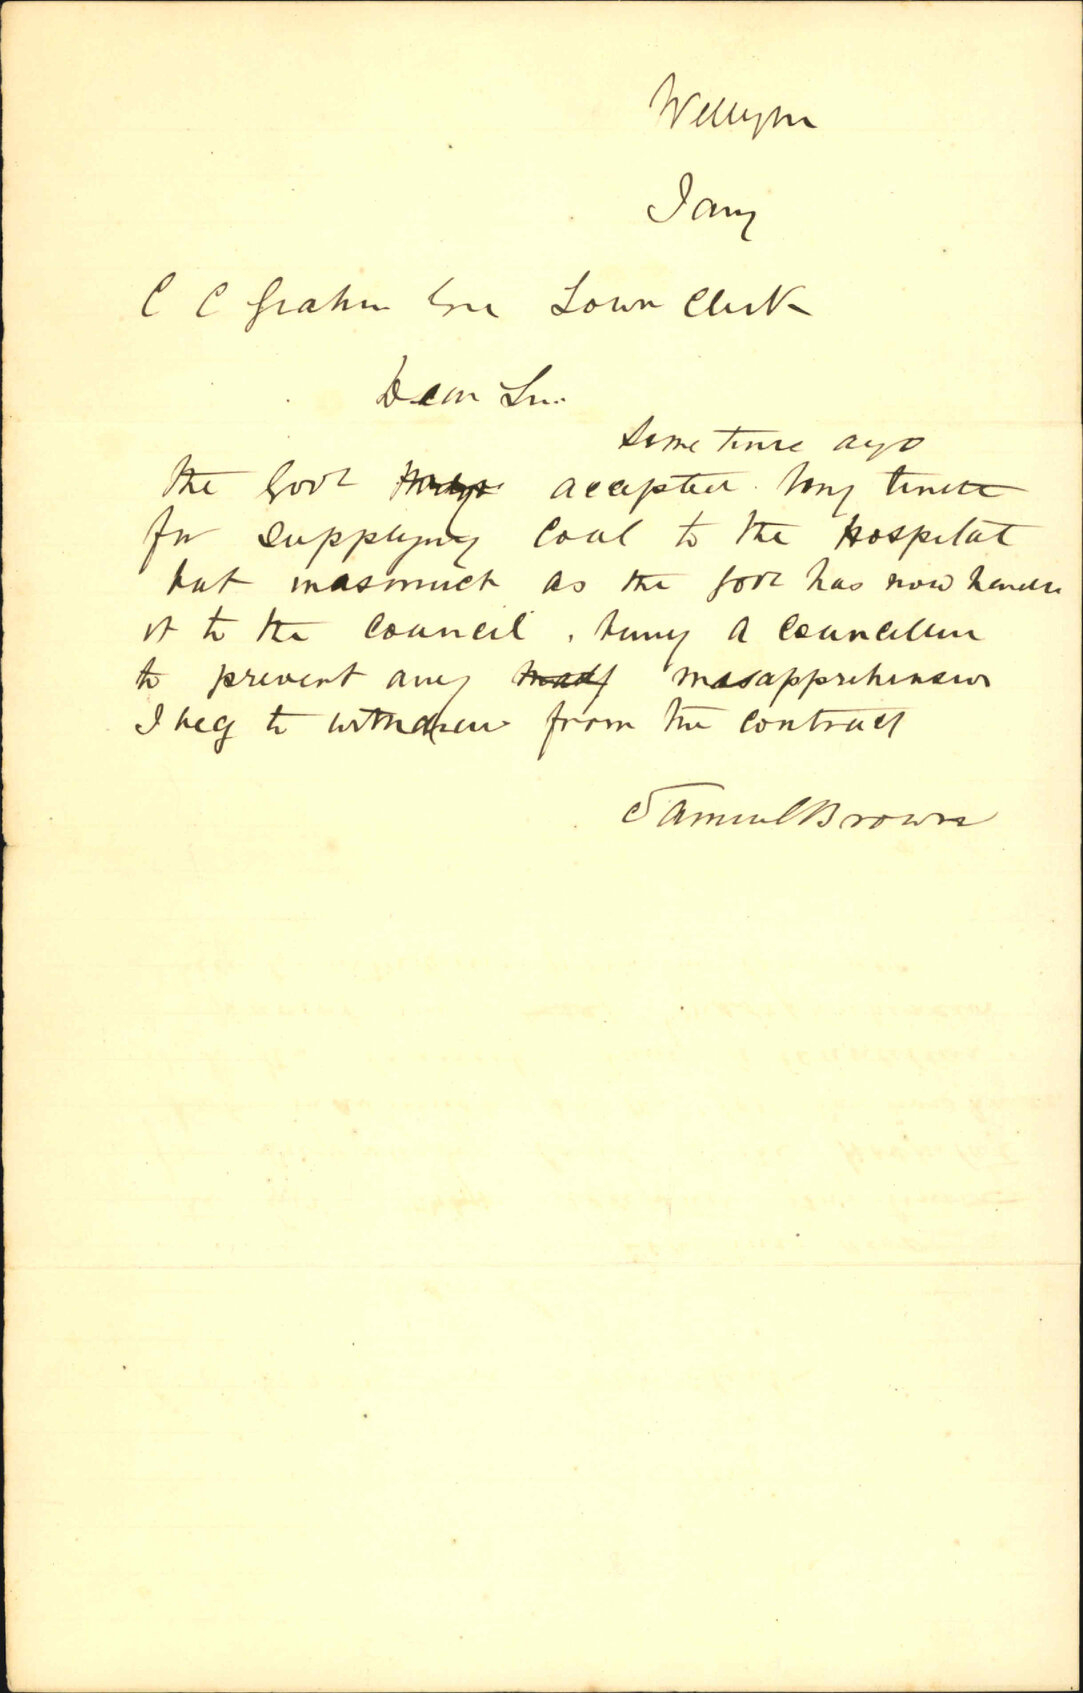 Wellington
Jany
C C Graham Esq Town Clerk
Dear Sir
Some time ago
the Govt accepted my tender
for supplying coal to the Hospital
but inasmuch as the Govt has now handed
it to the council, being a Councillor
to prevent any misapprehension
I beg to withdraw from the contract
Samuel Brown